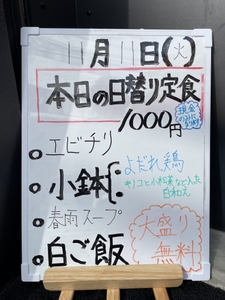 11月11日(火)
本日の日替り定食
1000円
現金のみに
エビチリ
小鉢
よだれ鶏
キノコと小松菜など入た
白和え
春雨スープ
白ご飯
大盛り
無料